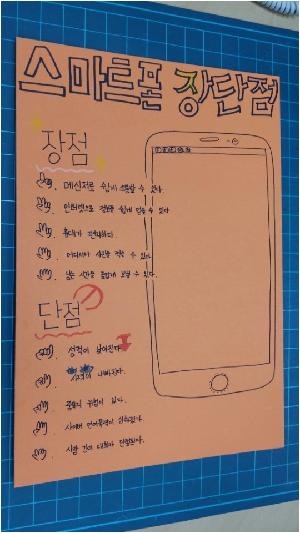 스마트폰 장단점
장점
메신저로 쉽게 소통할 수 있다.
인터넷으로 정보를 쉽게 얻을 수 있다
휴대가 간편하다.
어디서나 사진을 찍을 수 있다.
남는 시간을 즐겁게 보낼 수 있다.
단점
성적이 낮아진다.
시력이 나빠진다.
중독의 위험이 있다.
사이버 언어폭력이 심해진다.
사람 간의 대화가 단절된다.